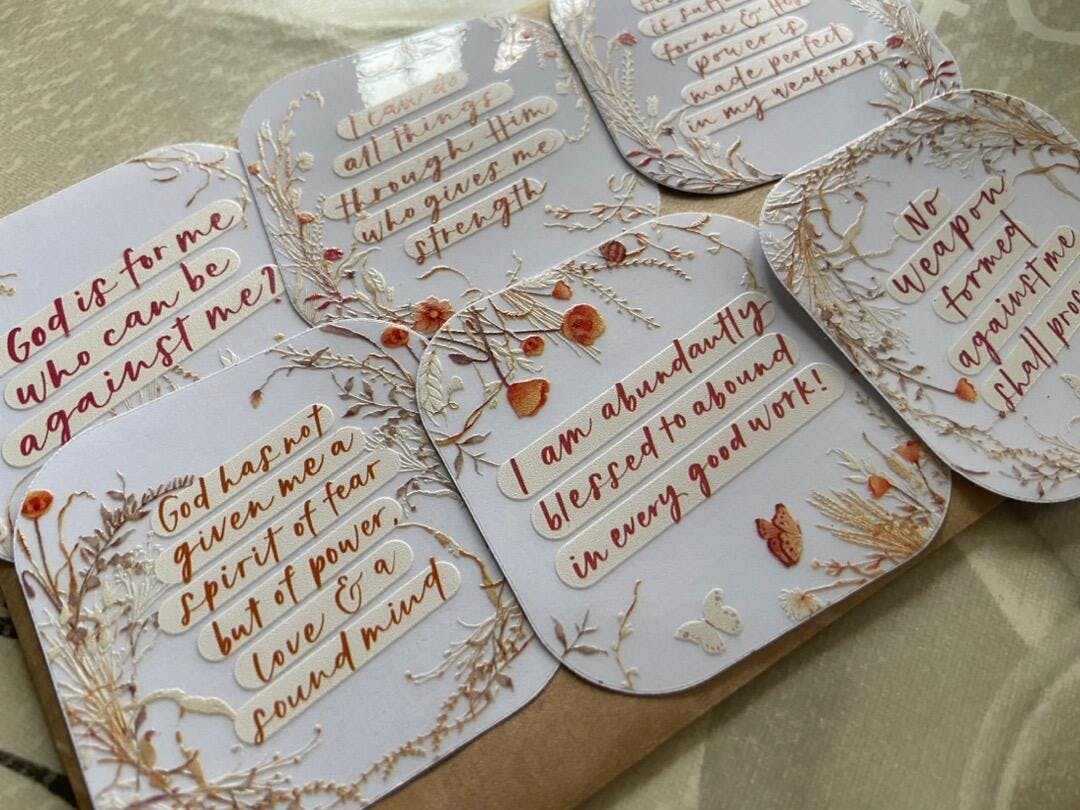 God is for me
who can be
against me?
I can do
all things
through Him
who gives me
strength
for me & His
power is
made perfect
in my weakness
No
Weapon
formed
against me
shall
God has not
given me a
spirit of fear
but of power,
love & a
sound mind
I am abundantly
blessed to abound
in every good work!